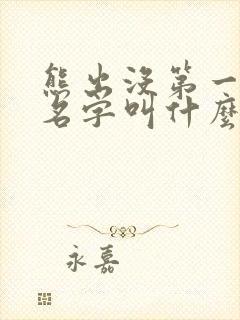 熊出没第一
名字叫什麼
永嘉